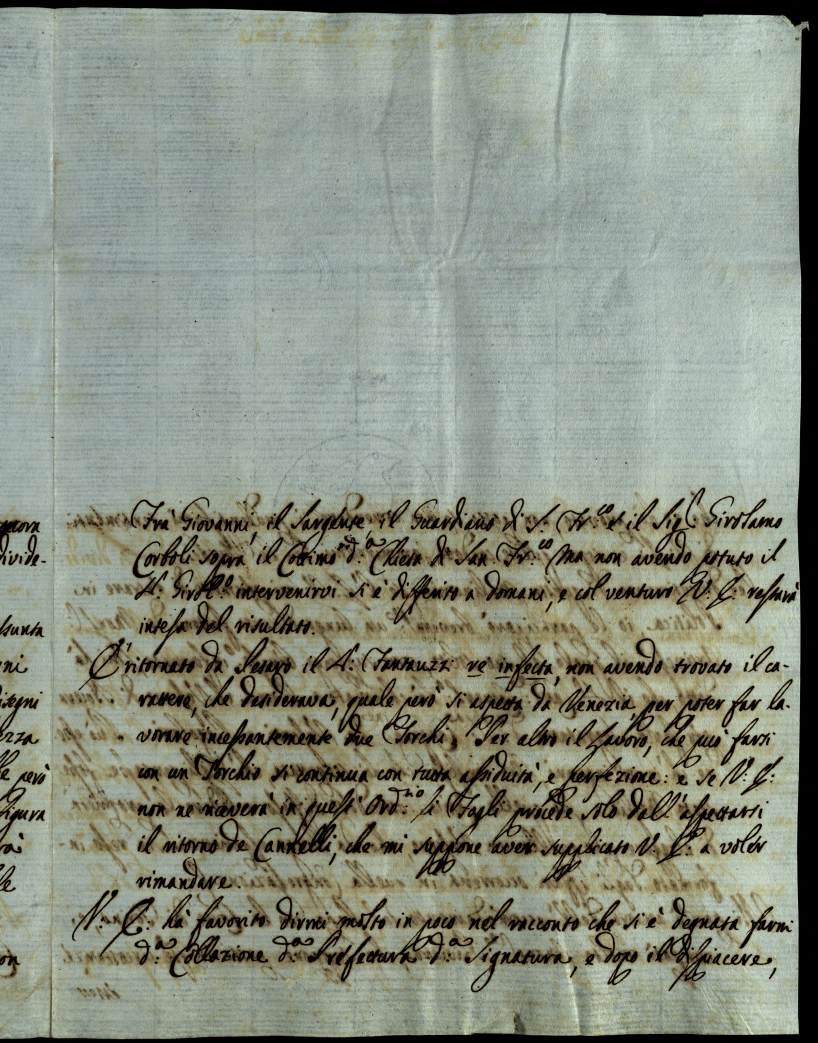 Frà Giovanni, il Sargente, il Guardiano di S: Fr:co e il Sigr: Girolamo
Corboli sopra il Cottimo d:a Chiesa di San Fr:co Ma non avendo potuto il
S: Girol:o intervenirvi si è differito a domani, e col venturo V: E: restarà
intesa del risultato.
È ritornato da Pesaro il S: Fantauzzi re infecta, non avendo trovato il ca-
rattere, che desiderava, quale però si aspetta da Venezia per poter far la-
vorare incessantemente due Torchi. Per altro il Lavoro, che può farsi
con un Torchio si continua con tutta assiduità, e perfezione: e se V: E:
non ne riceverà in quest' Ord:rio li Fogli procede solo dall' aspettarsi
il ritorno de Cannelli, che mi suppone aver supplicato V: E: a voler
rimandare.
V: E: hà favorito dirmi molto in poco nel racconto che si è degnata farmi
d:a Collazione d:a Prefettura d:a Signatura, e dopo il dispiacere,
divide-
ssunta
gni
isegni
ezza
le però
Figura
rà
le
on